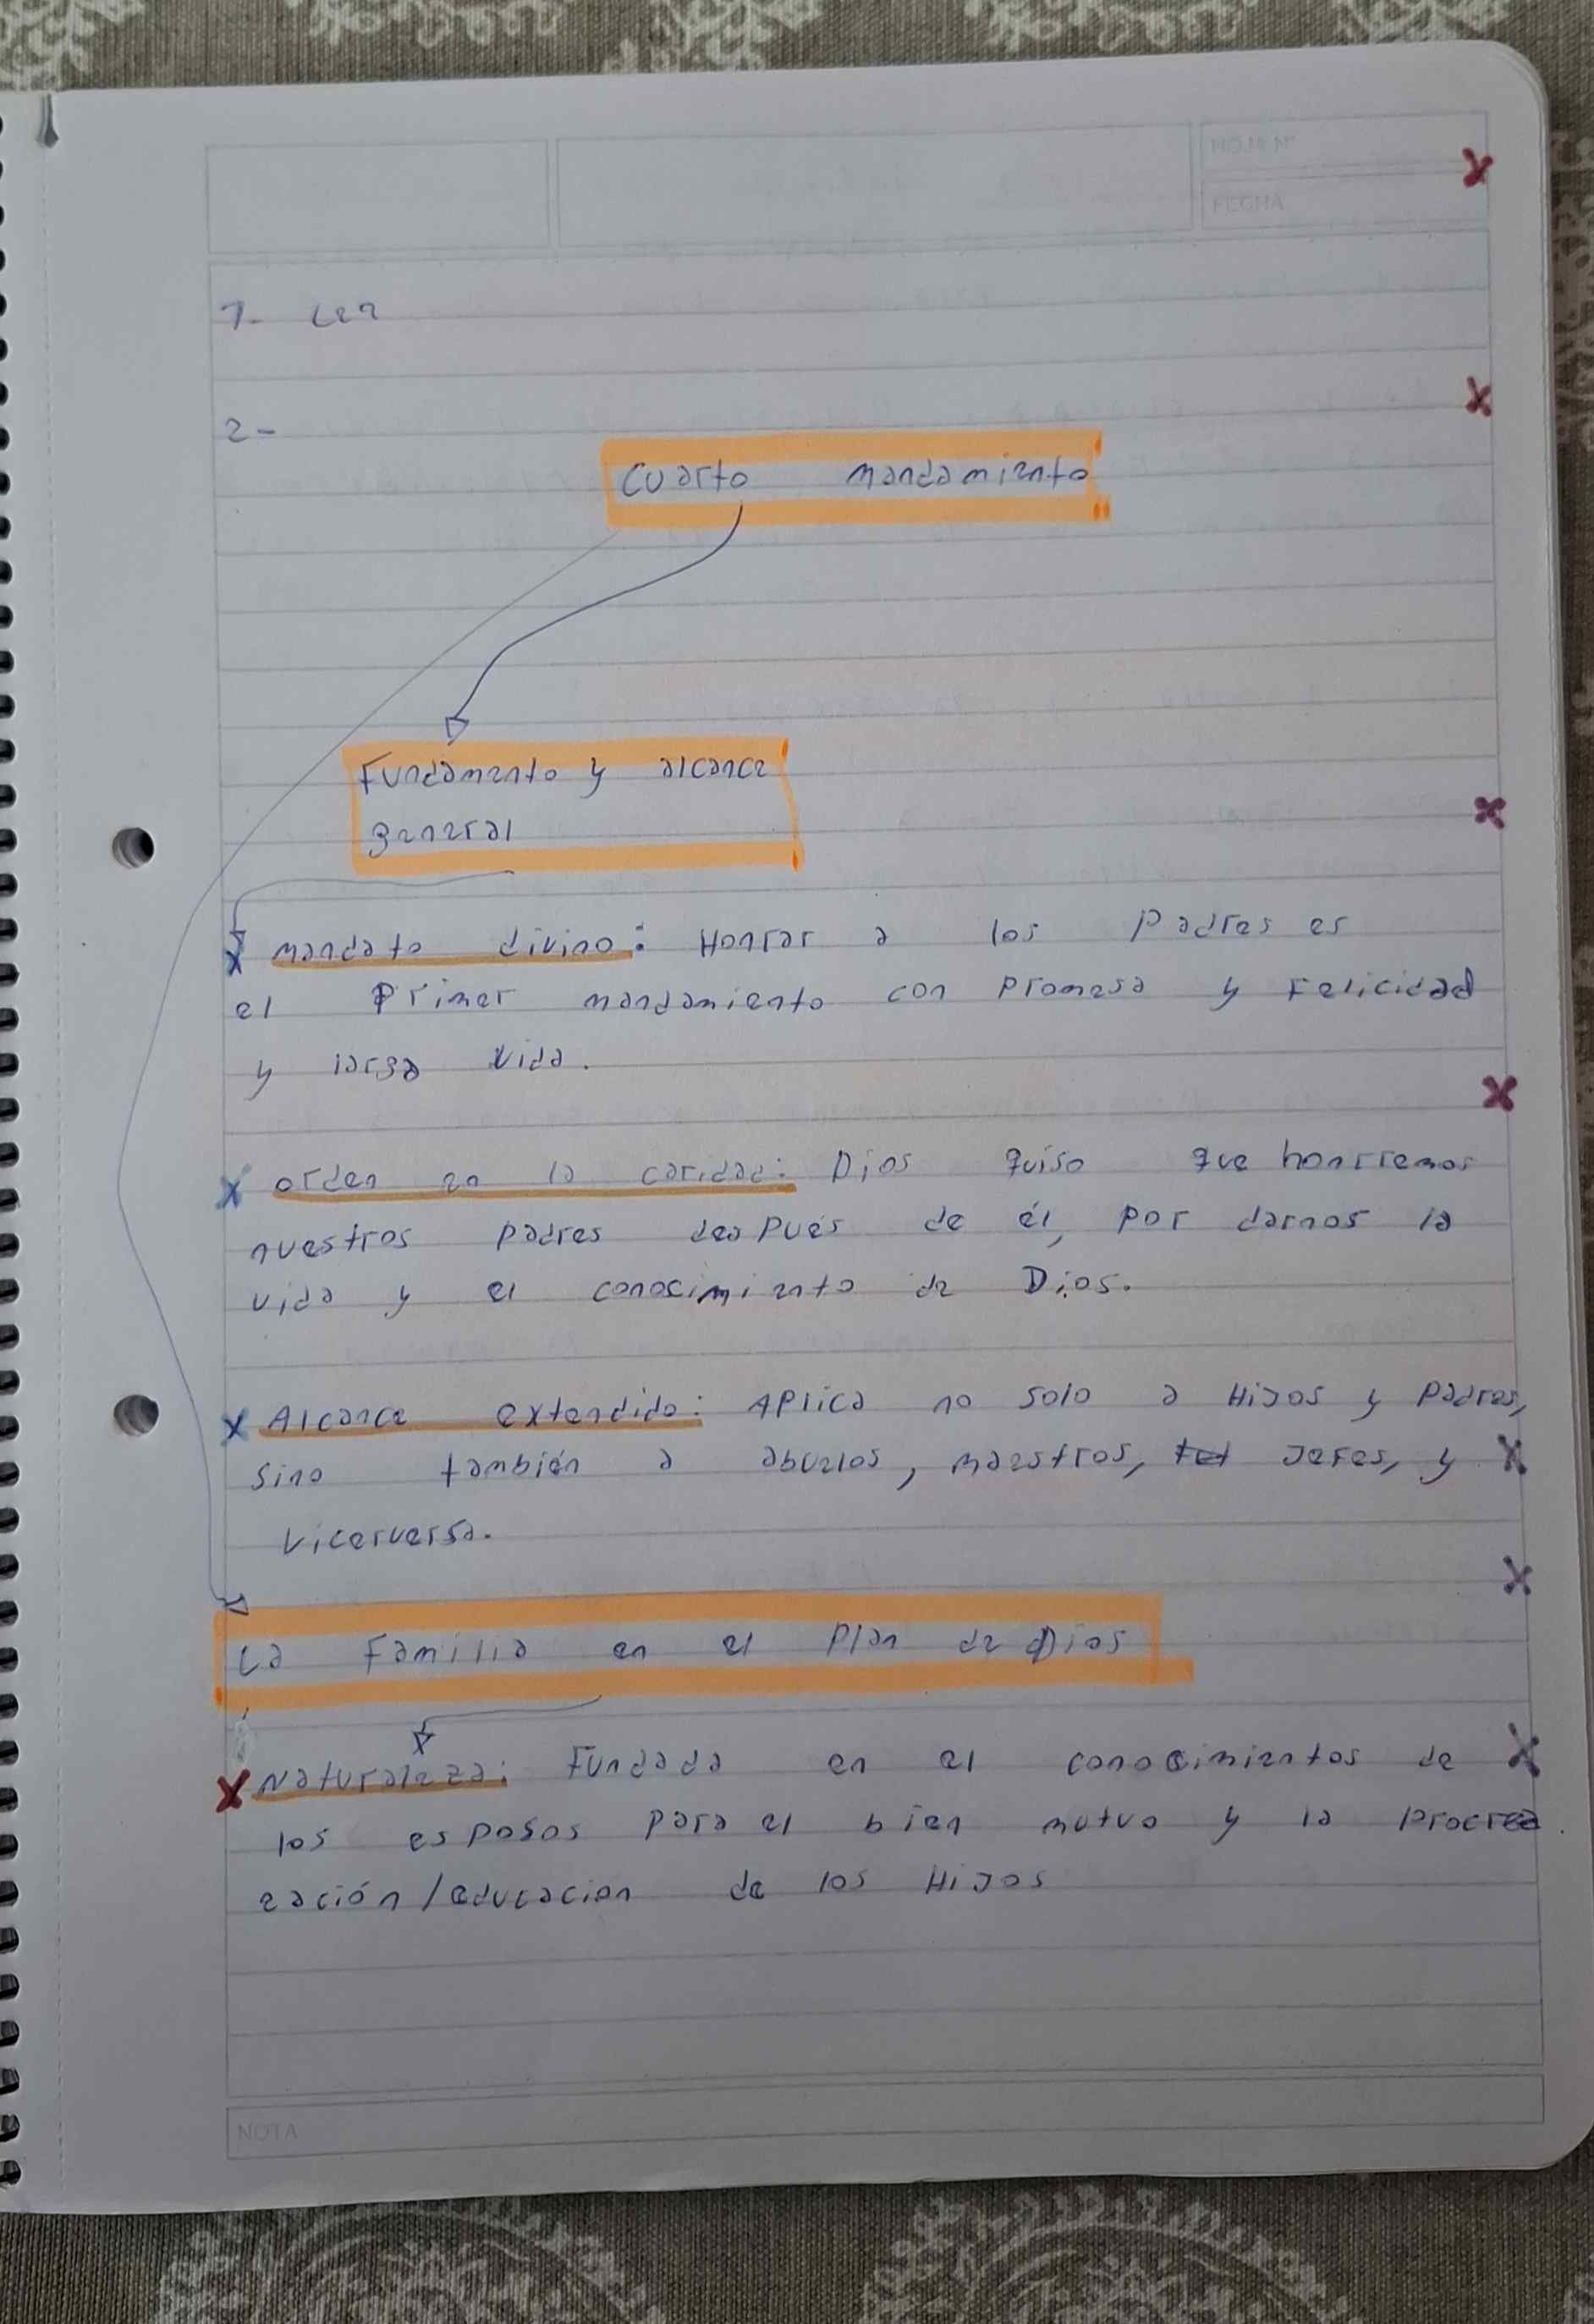 HOJA N°
FECHA
1- Ler
2-
Cuarto mandamiento
Fundamento y alcance
general
x mandato divino: Honrar a los padres es
el Primer mandamiento con promesa y Felicidad
y larga vida.
x orden en la caridad: Dios quiso que honrremos
nuestros padres después de él, por darnos la
vida y el conocimiento de Dios.
x Alcance extendido: Aplica no solo a Hijos y padres,
sino también a abuelos, maestros, tet Jefes, y
vicerversa.
La Familia en el Plan de Dios
x Naturaleza: Fundada en el conocimientos de
los esposos para el bien mutuo y la procrea
eación/educacion de los Hijos
NOTA